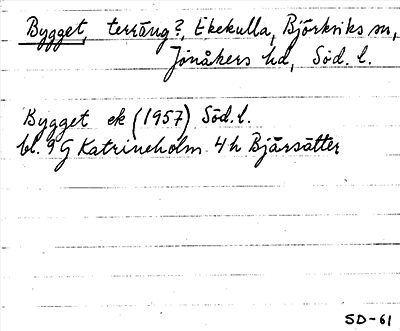 Bygget, terräng?, Ekekulla, Björkviks sn,
Jönåkers hd, Söd. l.
Bygget ek (1957) Söd. l.
bl. 9 G Katrineholm 4 h Bjärsätter
SD-61